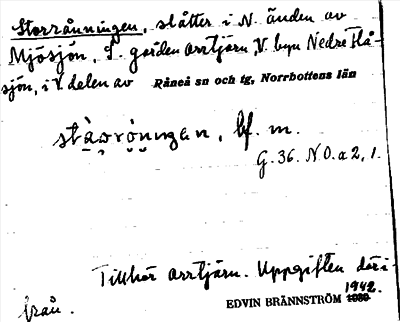 Storrånningen, slåtter i N. änden av
Mjösjön, S. gården Orrtjärn, V. byn Nedre Flå-
sjön, i V. delen av Råneå sn och tg, Norrbottens län
bf. m.
G. 36. N.O. a 2, 1.
Tillhör Orrtjärn. Uppgiften däri-
från.
EDVIN BRÄNNSTRÖM 1942.